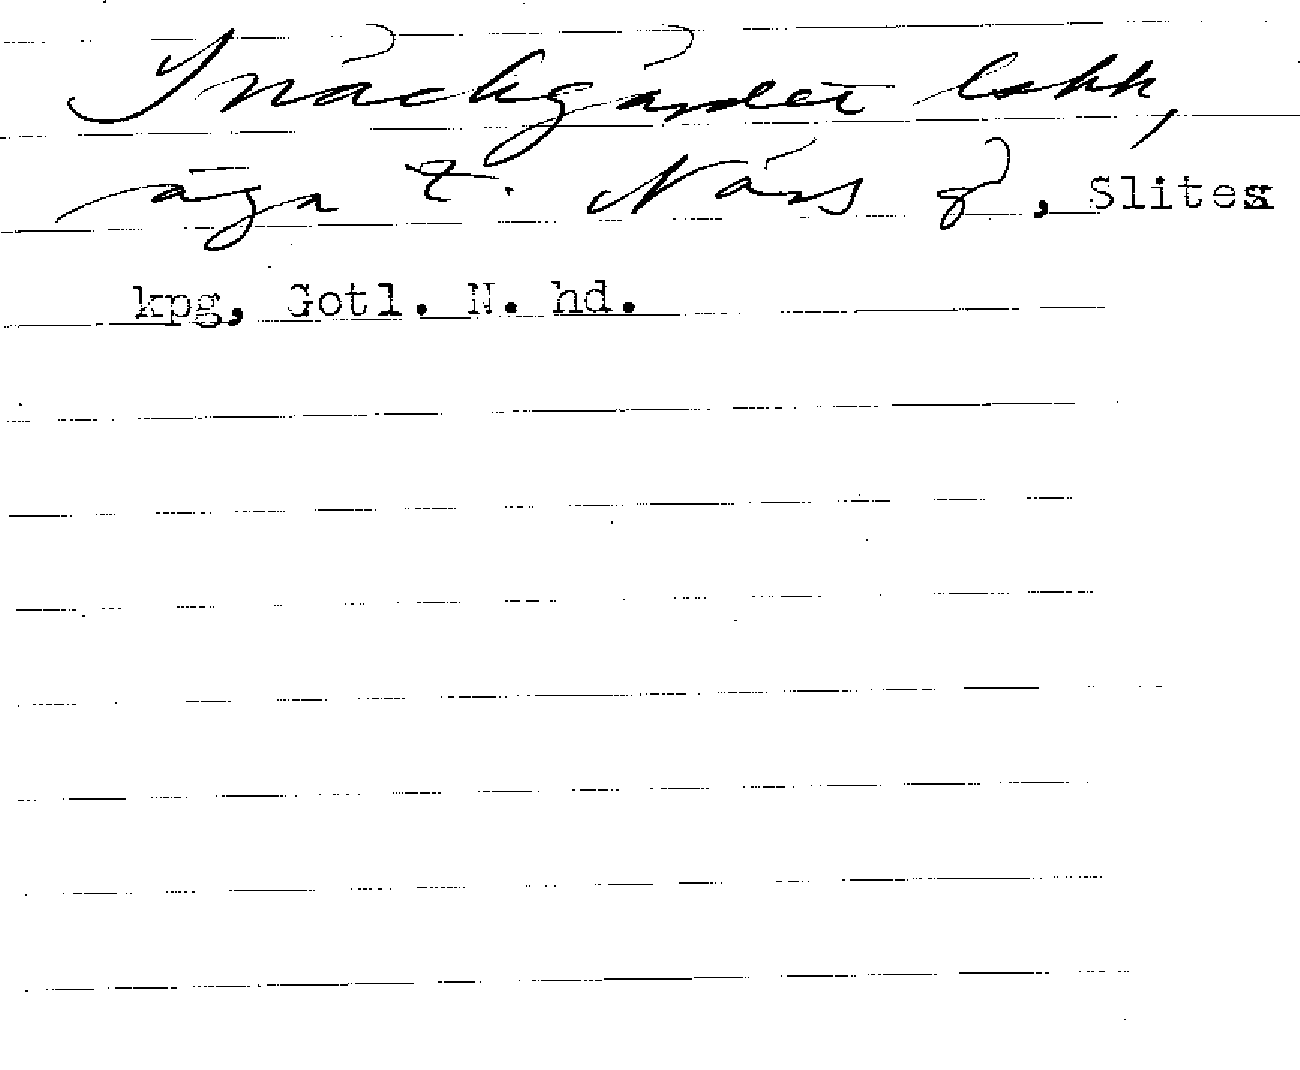 Snäckgärdet
äga t. Närs g, Slites
kpg, Gotl. N. hd.